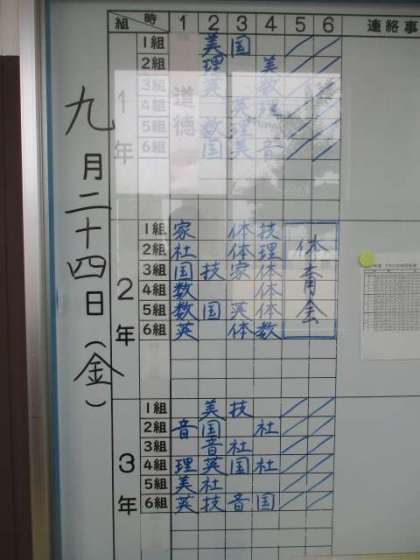 九月二十四日(金)
組 時 1 2 3 4 5 6 連絡事
1年 道徳
1組 美 国
2組 理 美
3組 英 数
4組 英 理
5組 数 理
6組 国 美 音
2年
1組 家 体 技
2組 社 体 理
3組 国 技 家 体
4組 数 体
5組 数 国 英 体
6組 英 体 数
体育会
3年
1組 美 技
2組 音 国 社
3組 音 社
4組 理 英 国 社
5組 美 社
6組 英 技 音 国